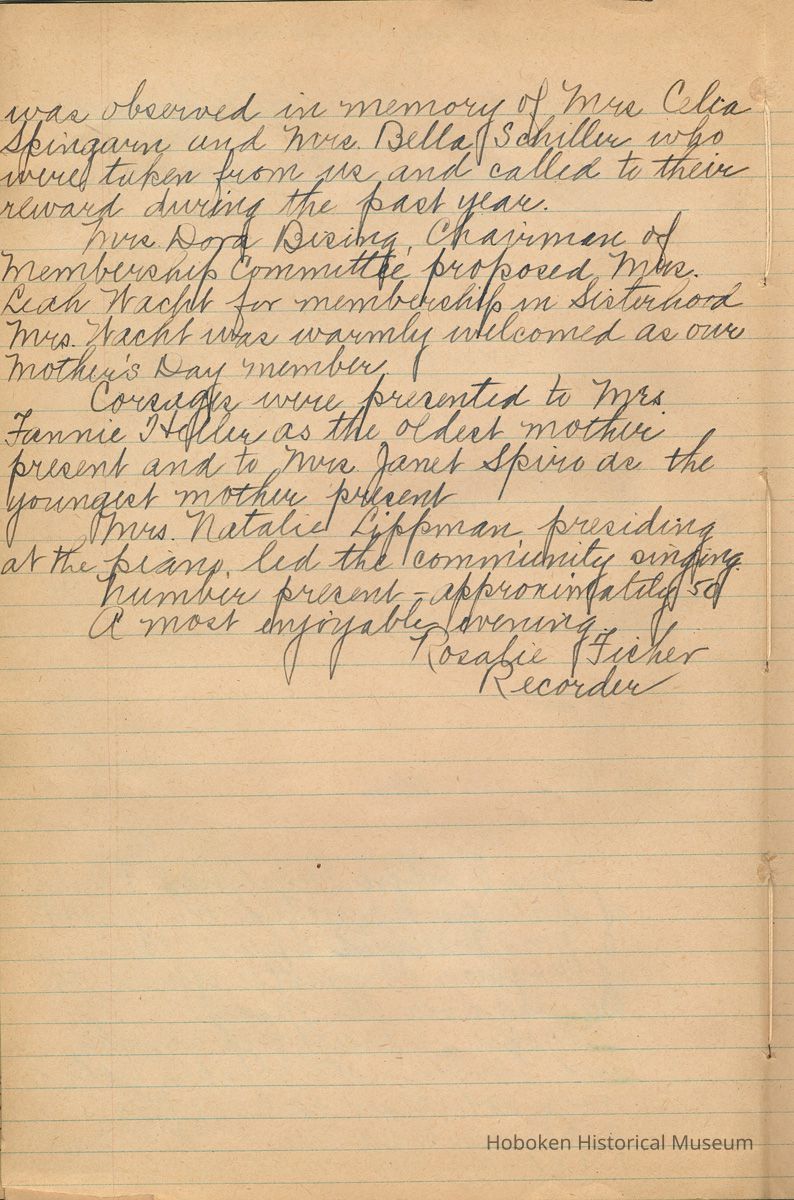 was observed in memory of Mrs Celia
Spingarn and Mrs. Bella Schiller who
were taken from us and called to their
reward during the past year.
Mrs. Dora Bising, Chairman of
Membership Committee proposed Mrs.
Leah Wacht for membership in Sisterhood
Mrs. Wacht was warmly welcomed as our
Mother's Day member
Corsages were presented to Mrs.
Fannie Heller as the oldest mother
present and to Mrs Janet Spiro as the
youngest mother present
Mrs. Natalie Lippman presiding
at the piano, led the community singing.
Number present - approximately 50
A most enjoyable evening.
Rosalie Ficher
Recorder
Hoboken Historical Museum